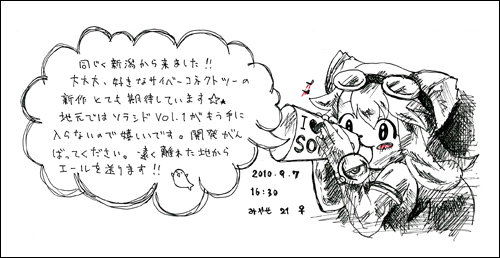 同じく新潟から来ました!!
大大大、好きなサイバーコネクトツーの
新作とても期待しています☆
地元ではソラシド Vol.1がもう手に
入らないので嬉しいです。開発がん
ばってください。遠く離れた地から
エールを送ります!!
I ♥
SO
2010.9.7
16:30
みやせ 21 ♀